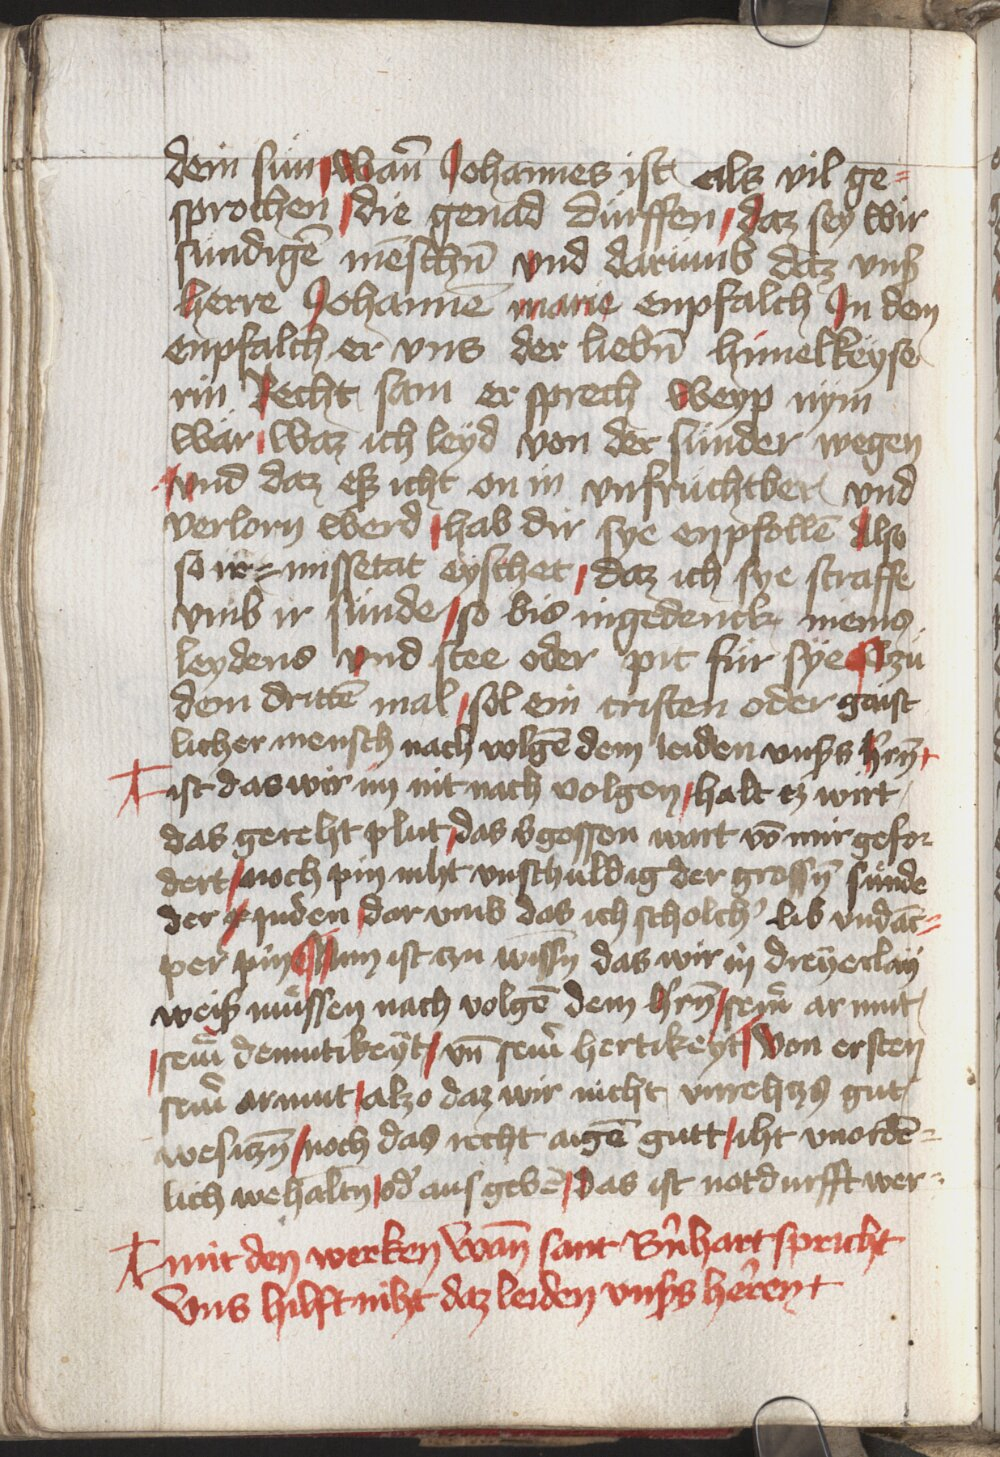 dem sun wan̄ Johannes ist als vil ge=
sprochen die genad dürffen daz sey wir
sündigē mēschn̄ vnd darümb daz vnß
herre Johannē marie enpfalch In dem
enpfalch er vns der liebn̄ himelkeyse
rin Recht sam er sprech weyp nym
war waz ich leyd von der sünder wegen
vnd daz eß icht on in vnfrüchtber vnd
verlorn werd hab dir sye enpfollē Also
so ir missetat eyschet daz ich sye straffe
vmb ir sünde so bis ingedenck meins
leydens vnd stee oder pit für sye Czu
dem drittē mal sol ein cristen oder gaist
licher mensch nach volgē dem leiden vnßs hr̄n +
ist das wir im nit nach volgen halt ez wirt
das gereht plut das v̓gossen wart vō mir gefo-
dert noch pin niht vnschuldig der grossn̄ sünde
der juden dar vmb das ich scholch̓ lib vndāc=
per pin Nun ist czu wissn̄ das wir in dreyerlay
weiß müssen nach volgē dem hr̄n sein̓ armut
sein̓ demutikeyt vn̄ sein̓ hertikeyt Von ersten
sein̓ armut alzo daz wir nicht vnrehtz gut
wesiczn̄ noch das recht aigē gutt iht vnordē=
lich wehaltn̄ od̓ aus gebē das ist notdurfft wer-
mit den werken wan̄ sant Bn̓hart spricht
vns hilft niht daz leiden vnßs herren +